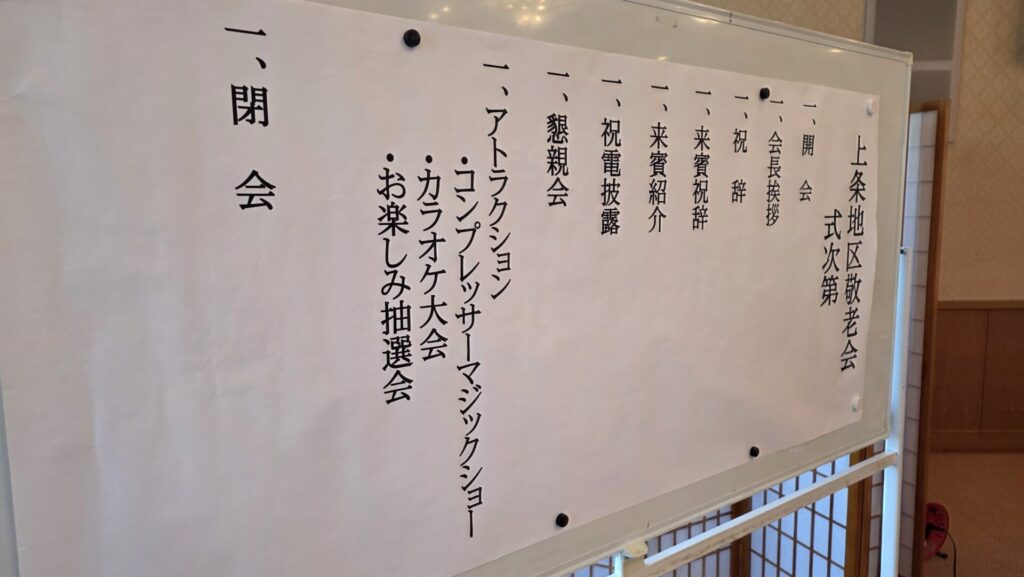 上条地区敬老会
式次第
一、開会
一、会長挨拶
一、祝辞
一、来賓祝辞
一、来賓紹介
一、祝電披露
一、懇親会
一、アトラクション
・コンプレッサーマジックショー
・カラオケ大会
・お楽しみ抽選会
一、閉会